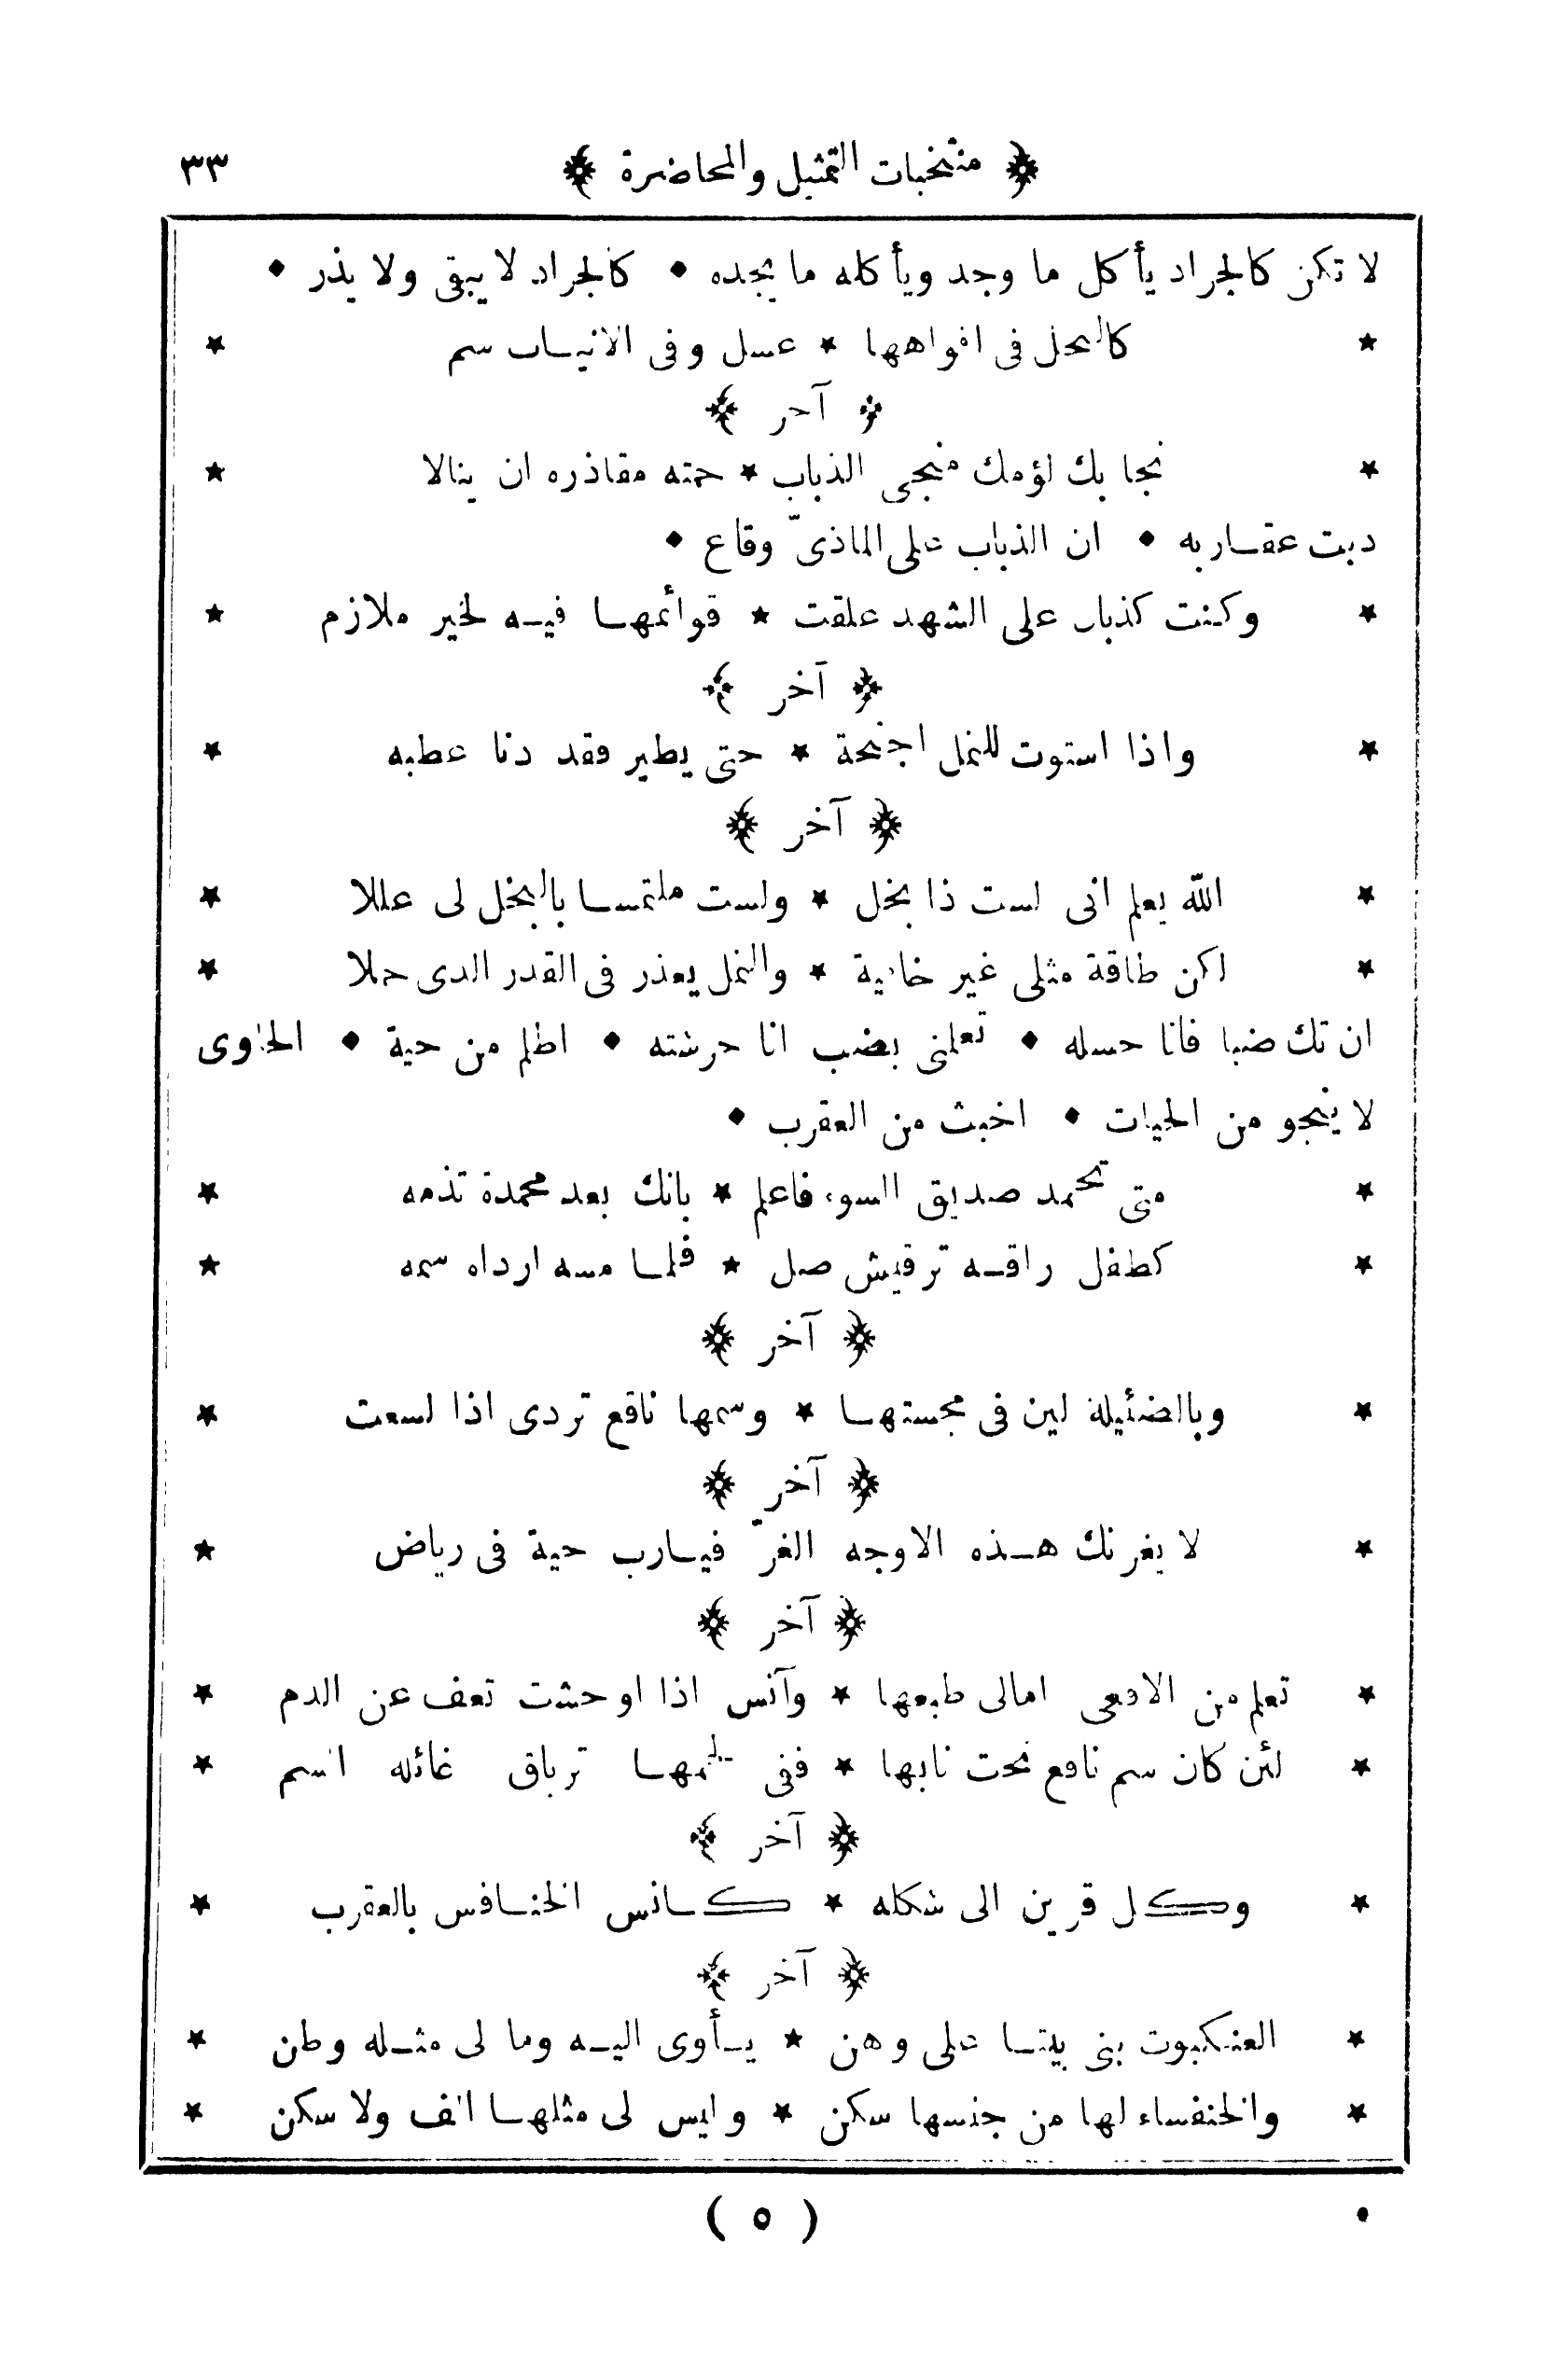 ﴿ منتخبات التمثيل والمحاضرة ﴾ ٣٣
لا تكن كالجراد يأكل ما وجد ويأكله ما يجده • كالجراد لا يبقى ولا يذر •
* كالنحل فى افواهها * عسل وفى الانياب سم *
﴿ آخر ﴾
* نجا بك لؤمك منجى الذباب * حمته مقاذره ان ينالا *
دبت عقاربه • ان الذباب على الماذىّ وقاع •
* وكنت كذباب على الشهد علقت * قوائمها فيه لخير ملازم *
﴿ آخر ﴾
* واذا استوت للنمل اجنحة * حتى يطير فقد دنا عطبه *
﴿ آخر ﴾
* الله يعلم انى لست ذا بخل * ولست ملتمسا بالبخل لى عللا *
* لكن طاقة مثلى غير خافية * والنمل يعذر فى القدر الذى حملا *
ان تك ضبا فانا حسله • تعلمنى بضب انا حرشته • اظلم من حية • الحاوى
لا ينجو من الحيات • اخبث من العقرب •
* متى تحمد صديق السوء فاعلم * بانك بعد محمدة تذمه *
* كطفل راقه ترقيش صل * فلما مسه ارداه سمه *
﴿ آخر ﴾
* وبالضئيلة لين فى مجستها * وسمها ناقع تردى اذا لسعت *
﴿ آخر ﴾
* لا يغرنك هذه الاوجه الغرّ فيارب حية فى رياض *
﴿ آخر ﴾
* تعلم من الافعى امالى طبعها * وآنس اذا اوحشت تعف عن الدم *
* لئن كان سم ناقع تحت نابها * ففى لحمها ترياق غائله السم *
﴿ آخر ﴾
* وكل قرين الى شكله * كانس الخنافس بالعقرب *
﴿ آخر ﴾
* العنكبوت بنى بيتا على وهن * يأوى اليه وما لى مثله وطن *
* والخنفساء لها من جنسها سكن * وليس لى مثلها الف ولا سكن *
( ٥ )